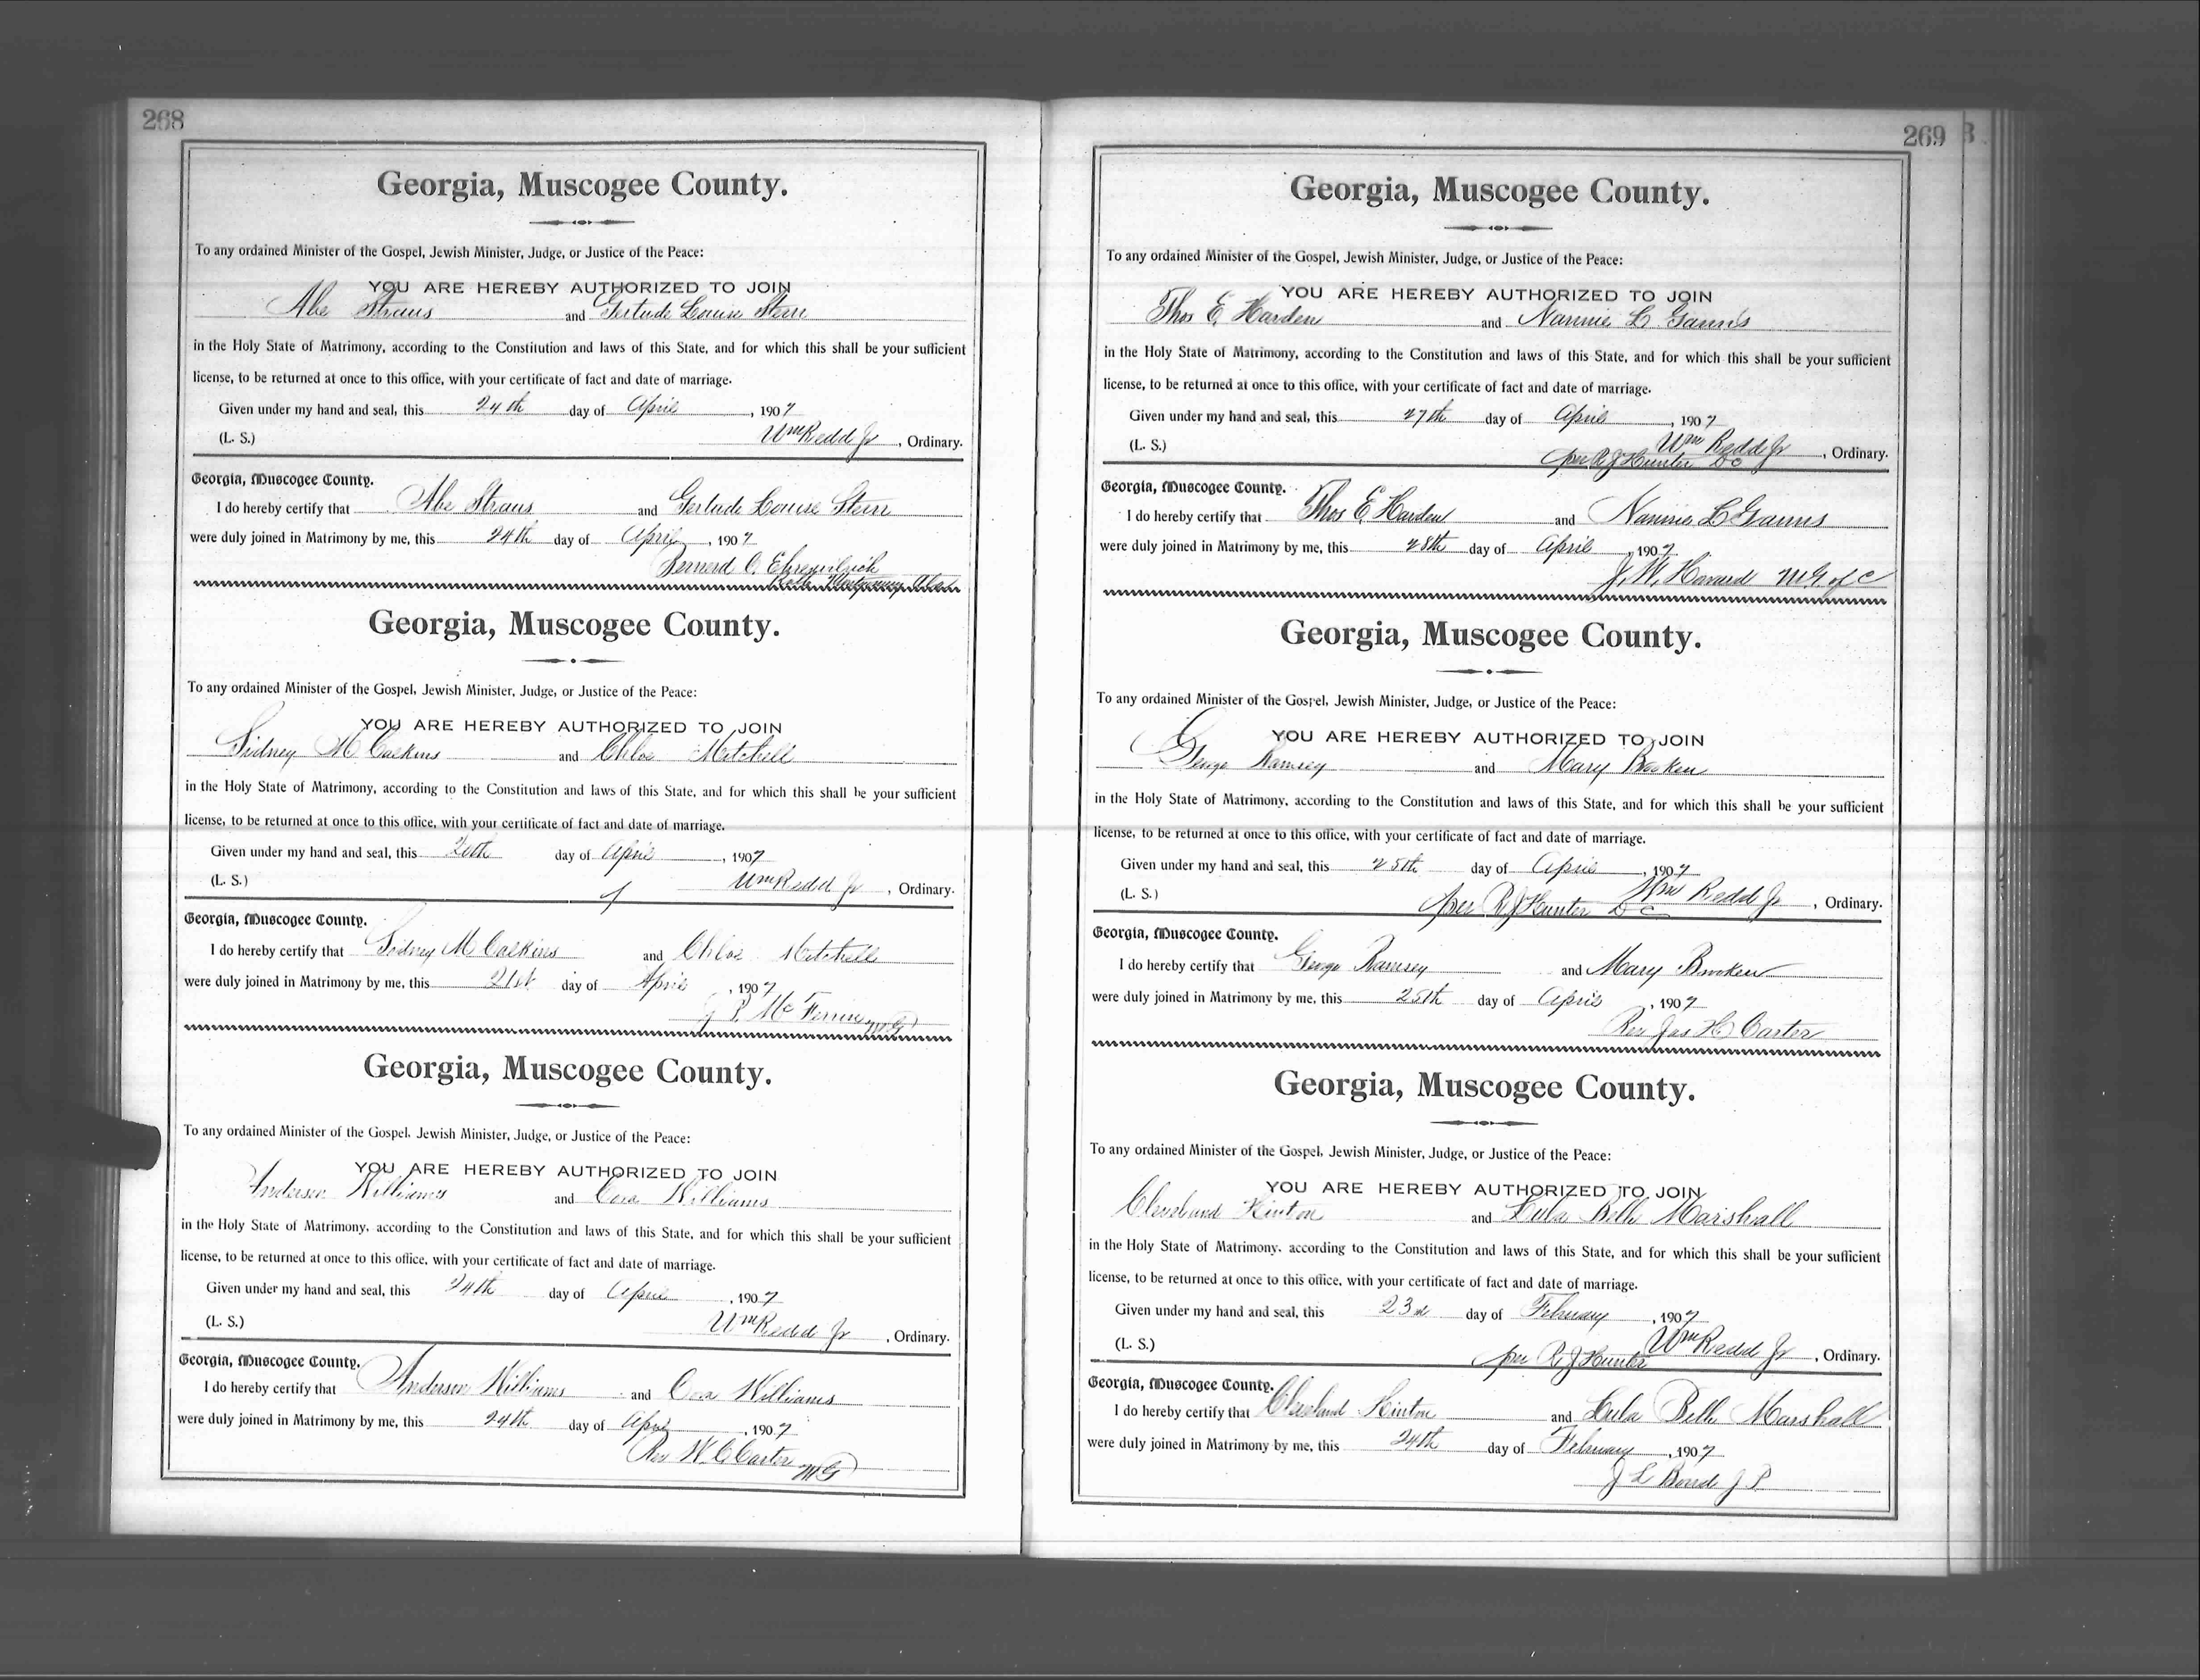 268
Georgia, Muscogee County.
To any ordained Minister of the Gospel, Jewish Minister, Judge, or Justice of the Peace:
YOU ARE HEREBY AUTHORIZED TO JOIN
Abe Straus and Gertude Louise Stern
in the Holy State of Matrimony, according to the Constitution and laws of this State, and for which this shall be your sufficient
license, to be returned at once to this office, with your certificate of fact and date of marriage.
Given under my hand and seal, this 24th day of April, 1907
(L. S.) Wm Redd Jr, Ordinary.
Georgia, Muscogee County.
I do hereby certify that Abe Straus and Gertude Louise Stern
were duly joined in Matrimony by me, this 24th day of April, 1907
Bernard C. Ehrenreich
Montgomery Ala
Georgia, Muscogee County.
To any ordained Minister of the Gospel, Jewish Minister, Judge, or Justice of the Peace:
YOU ARE HEREBY AUTHORIZED TO JOIN
Sidney M Calkins and Chloe Mitchell
in the Holy State of Matrimony, according to the Constitution and laws of this State, and for which this shall be your sufficient
license, to be returned at once to this office, with your certificate of fact and date of marriage.
Given under my hand and seal, this 20th day of April, 1907
(L. S.) Wm Redd Jr, Ordinary.
Georgia, Muscogee County.
I do hereby certify that Sidney M Calkins and Chloe Mitchell
were duly joined in Matrimony by me, this 21st day of April, 1907
J P. McFerrin MG
Georgia, Muscogee County.
To any ordained Minister of the Gospel, Jewish Minister, Judge, or Justice of the Peace:
YOU ARE HEREBY AUTHORIZED TO JOIN
Anderson Williams and Cora Williams
in the Holy State of Matrimony, according to the Constitution and laws of this State, and for which this shall be your sufficient
license, to be returned at once to this office, with your certificate of fact and date of marriage.
Given under my hand and seal, this 24th day of April, 1907
(L. S.) Wm Redd Jr, Ordinary.
Georgia, Muscogee County.
I do hereby certify that Anderson Williams and Cora Williams
were duly joined in Matrimony by me, this 24th day of April, 1907
Rev W. C Carter MG
269
Georgia, Muscogee County.
To any ordained Minister of the Gospel, Jewish Minister, Judge, or Justice of the Peace:
YOU ARE HEREBY AUTHORIZED TO JOIN
Thos E. Harden and Nannie L
in the Holy State of Matrimony, according to the Constitution and laws of this State, and for which this shall be your sufficient
license, to be returned at once to this office, with your certificate of fact and date of marriage.
Given under my hand and seal, this 27th day of April, 1907
(L. S.) Wm Redd Jr, Ordinary.
per R J Hunter DC
Georgia, Muscogee County.
I do hereby certify that Thos E. Harden and Nannie L
were duly joined in Matrimony by me, this 28th day of April, 1907
J. W. Howard MG of C
Georgia, Muscogee County.
To any ordained Minister of the Gospel, Jewish Minister, Judge, or Justice of the Peace:
YOU ARE HEREBY AUTHORIZED TO JOIN
George Ramsey and Mary Brooken
in the Holy State of Matrimony, according to the Constitution and laws of this State, and for which this shall be your sufficient
license, to be returned at once to this office, with your certificate of fact and date of marriage.
Given under my hand and seal, this 25th day of April, 1907
(L. S.) per R J Hunter DC Wm Redd Jr, Ordinary.
Georgia, Muscogee County.
I do hereby certify that George Ramsey and Mary Brooken
were duly joined in Matrimony by me, this 25th day of April, 1907
Rev Jas H Carter
Georgia, Muscogee County.
To any ordained Minister of the Gospel, Jewish Minister, Judge, or Justice of the Peace:
YOU ARE HEREBY AUTHORIZED TO JOIN
Cleveland Hinton and Lula Belle Marshall
in the Holy State of Matrimony, according to the Constitution and laws of this State, and for which this shall be your sufficient
license, to be returned at once to this office, with your certificate of fact and date of marriage.
Given under my hand and seal, this 23rd day of February, 1907
(L. S.) per R. J Hunter Wm Redd Jr, Ordinary.
Georgia, Muscogee County.
I do hereby certify that Cleveland Hinton and Lula Belle Marshall
were duly joined in Matrimony by me, this 24th day of February, 1907
J L Board J P